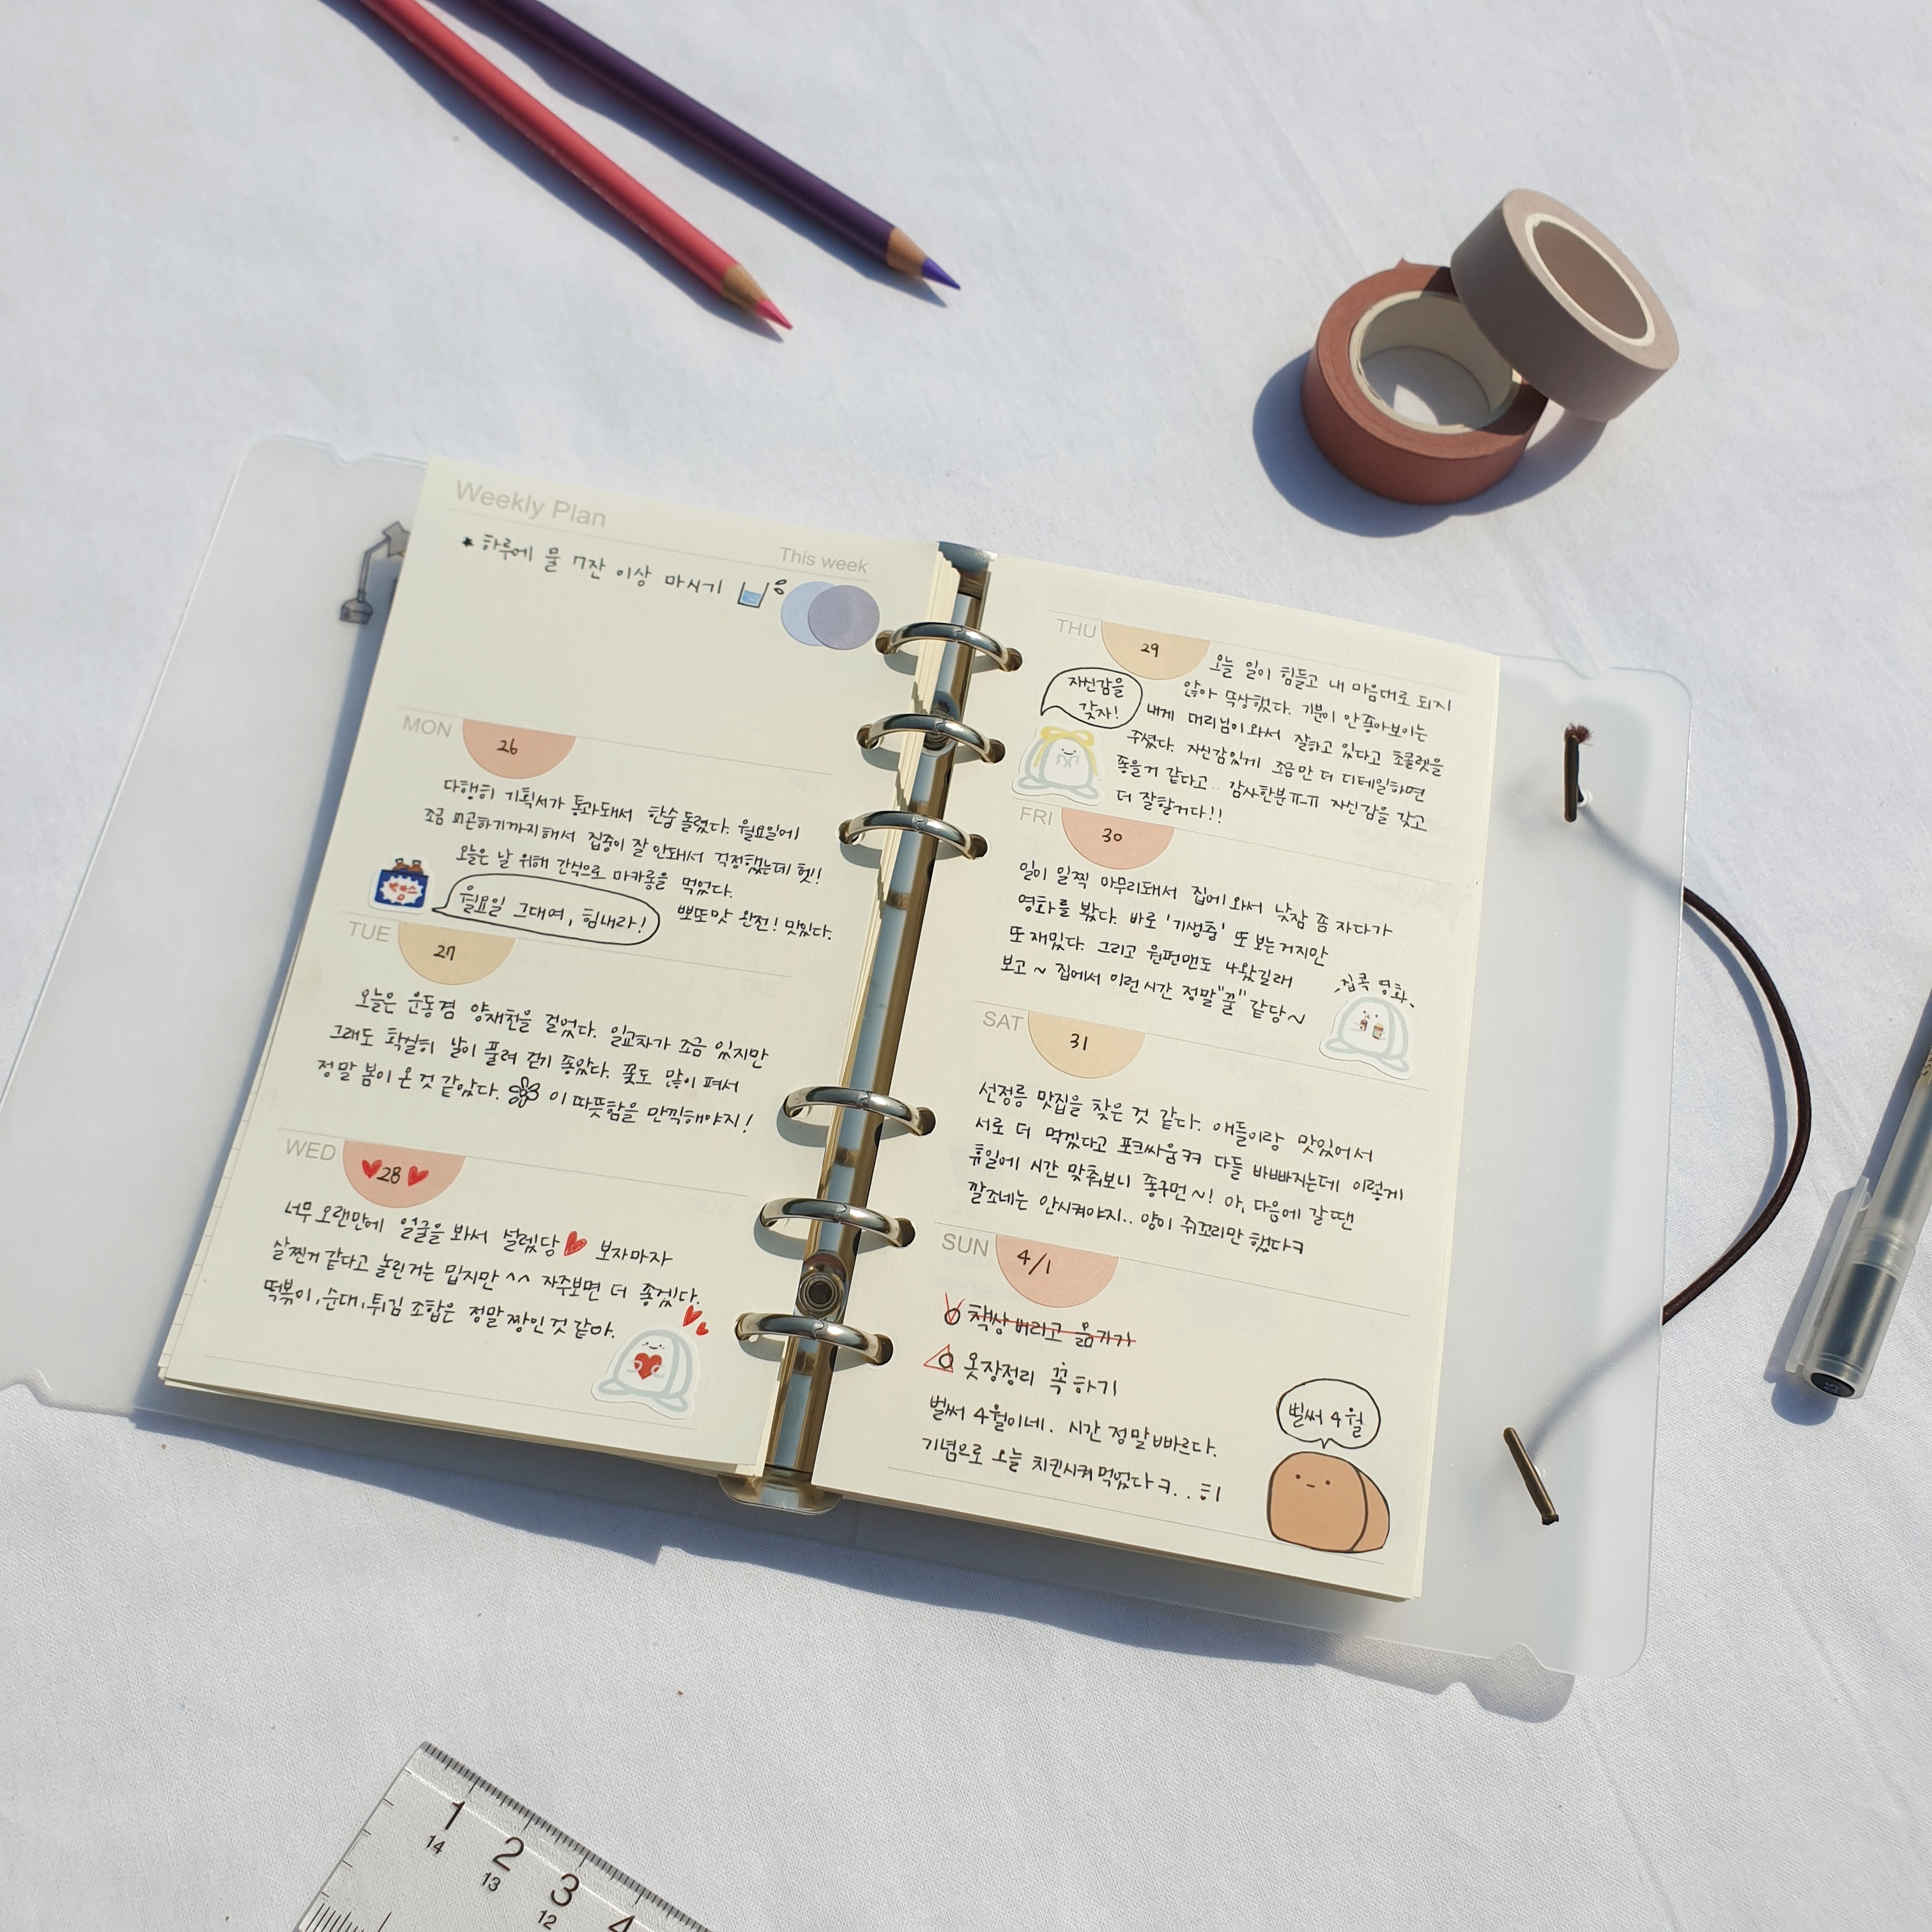 Weekly Plan
This week
* 하루에 물 7잔 이상 마시기
MON
26
다행히 기획서가 통과돼서 한숨 돌렸다. 월요일에
조금 피곤하기까지 해서 집중이 잘 안돼서 걱정했는데 헷!!
오늘은 날 위해 간식으로 마카롱을 먹었다.
뽀또맛 완전! 맛있다.
박카스
월요일 그대여, 힘내라!
TUE
27
오늘은 운동겸 양재천을 걸었다. 일교차가 조금 있지만
그래도 확실히 날이 풀려 걷기 좋았다. 꽃도 많이 펴서
정말 봄이 온 것 같았다. 이 따뜻함을 만끽해야지!
WED
28
너무 오랜만에 얼굴을 봐서 설렜당 보자마자
살찐거 같다고 놀린거는 밉지만 ^^ 자주보면 더 좋겠다.
떡볶이, 순대, 튀김 조합은 정말 짱인것 같아.
THU
29
오늘 일이 힘들고 내 마음대로 되지
않아 속상했다. 기분이 안좋아보이는
내게 대리님이 와서 잘하고 있다고 초콜렛을
주셨다. 자신감있게 조금만 더 디테일하면
좋을거 같다고.. 감사한분ㅠㅠ 자신감을 갖고
더 잘할거다!!
자신감을
갖자!
FRI
30
일이 일찍 마무리돼서 집에 와서 낮잠 좀 자다가
영화를 봤다. 바로 '기생충' 또 보는거지만
또 재밌다. 그리고 원펀맨도 나왔길래
보고~ 집에서 이런 시간 정말 "꿀" 같당~
집콕 영화
SAT
31
선정릉 맛집을 찾은 것 같다. 애들이랑 맛있어서
서로 더 먹겠다고 포크싸움ㅋㅋ 다들 바빠지는데 이렇게
휴일에 시간 맞춰보니 좋구먼~! 아, 다음에 갈땐
깔조네는 안시켜야지.. 양이 쥐꼬리만 했다ㅋ
SUN
4/1
책상 버리고 옮기기
옷장정리 꼭 하기
벌써 4월이네. 시간 정말 빠르다.
기념으로 오늘 치킨시켜 먹었다ㅋ..
벌써 4월
1 2 3 4
14 13 12